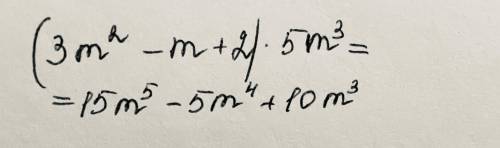 (3m² - m + 2) · 5m³ =
= 15m⁵ - 5m⁴ + 10m³